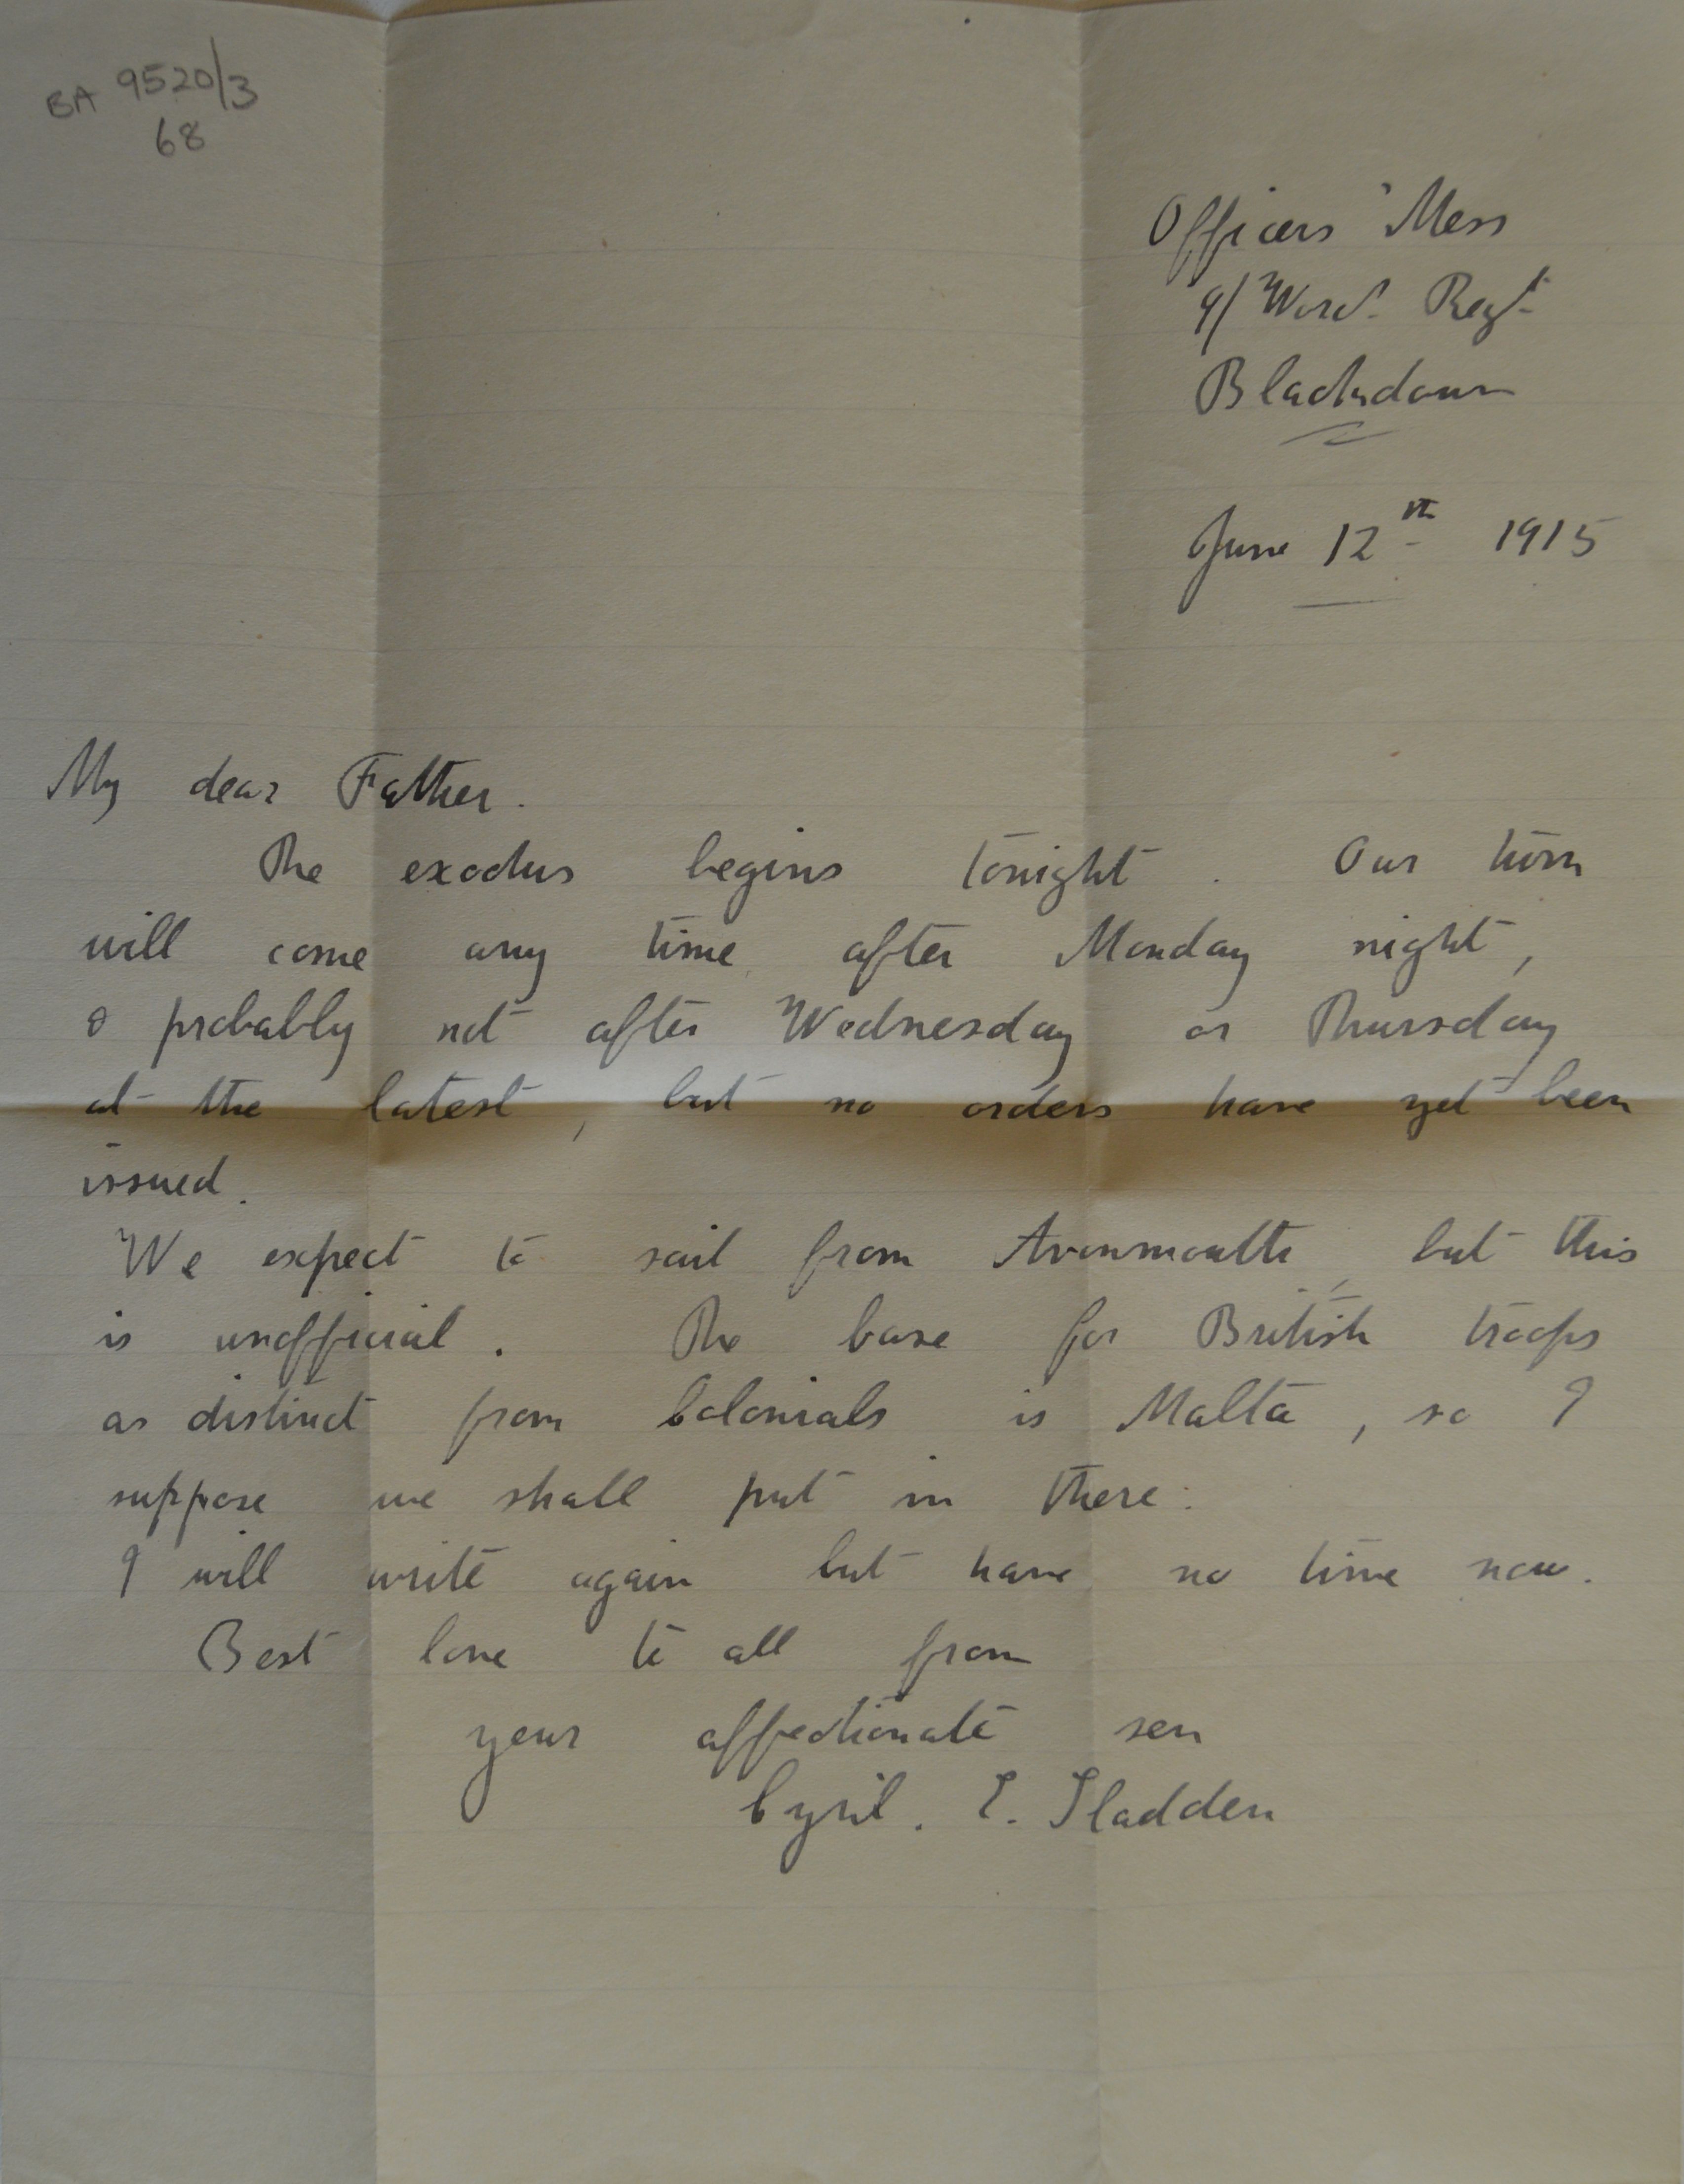 BA 9520/3
68
Officers' Mess
9/Worc. Regt.
Blackdown
June 12th 1915
My dear Father.
The exodus begins tonight. Our turn
will come any time after Monday night,
& probably not after Wednesday or Thursday
at the latest, but no orders have yet been
issued.
We expect to sail from Avonmouth, but this
is unofficial. The base for British troops
as distinct from Colonials is Malta, so I
suppose we shall put in there.
I will write again but have no time now.
Best love to all from
your affectionate son
Cyril. E. Sladden